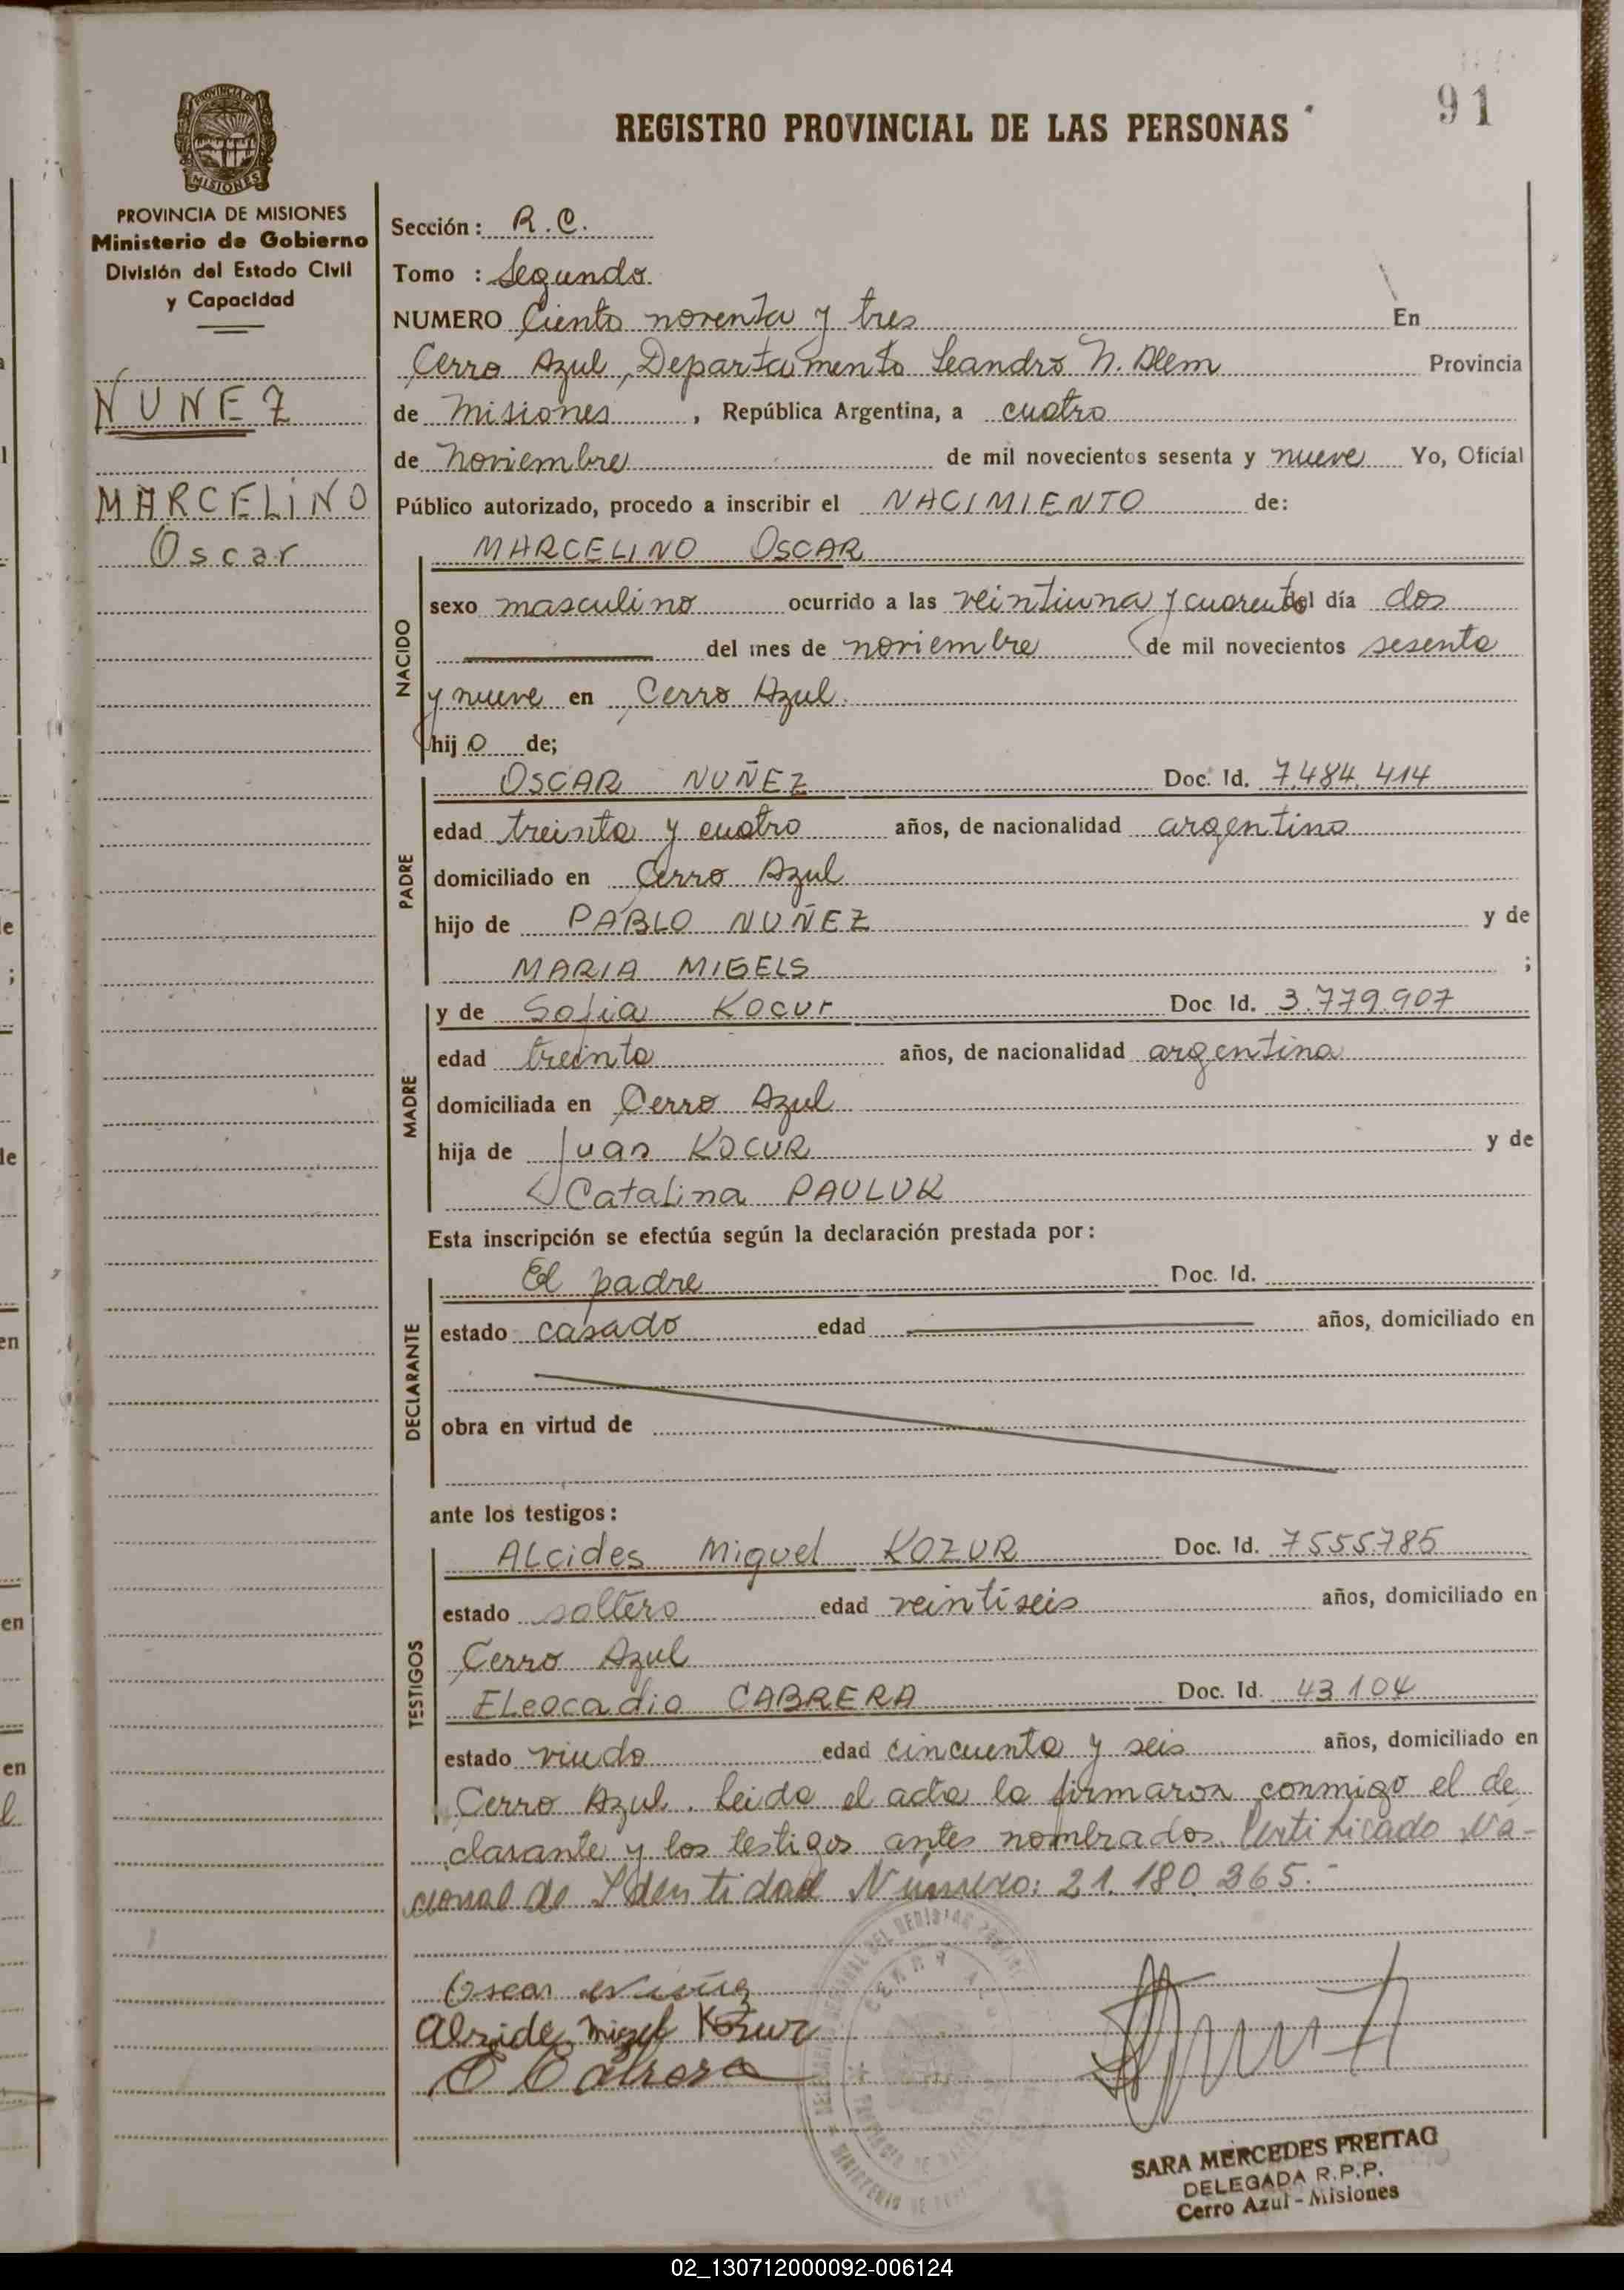 91
REGISTRO PROVINCIAL DE LAS PERSONAS
PROVINCIA DE MISIONES
MISIONES
PROVINCIA DE MISIONES
Ministerio de Gobierno
División del Estado Civil
y Capacidad
NUNEZ
MARCELINO
Oscar
Sección: R.C.
Tomo : Segundo
NUMERO Ciento noventa y tres En
Cerro Azul, Departamento Leandro N. Alem Provincia
de Misiones, República Argentina, a cuatro
de Noviembre de mil novecientos sesenta y nueve Yo, Oficial
Público autorizado, procedo a inscribir el NACIMIENTO de:
MARCELINO OSCAR
NACIDO
sexo masculino ocurrido a las veintiuna y cuarenta del día dos
del mes de noviembre de mil novecientos sesenta
y nueve en Cerro Azul.
hijo de;
PADRE
OSCAR NUÑEZ Doc. Id. 7.484.414
edad treinta y cuatro años, de nacionalidad argentino
domiciliado en Cerro Azul
hijo de PABLO NUÑEZ y de
MARIA MIGELS ;
MADRE
y de Sofia Kocur Doc Id. 3.779.907
edad treinta años, de nacionalidad argentina
domiciliada en Cerro Azul
hija de Juan KOCUR y de
Catalina PAULUK
Esta inscripción se efectúa según la declaración prestada por:
DECLARANTE
El padre Doc. Id.
estado casado edad años, domiciliado en
obra en virtud de
ante los testigos:
TESTIGOS
ALcides Miguel KOZUR Doc. Id. 7555785
estado soltero edad veintiseis años, domiciliado en
Cerro Azul
ELeocadio CABRERA Doc. Id. 43104
estado viudo edad cincuenta y seis años, domiciliado en
Cerro Azul. Leida el acta la firmaron conmigo el de
clarante y los testigos antes nombrados. Certificado Na-
cional de Identidad Número: 21.180.365.-
Oscar
Miguel Kozur
E Cabrera
SARA MERCEDES FREITAG
DELEGADA R.P.P.
Cerro Azul - Misiones
02_130712000092-006124